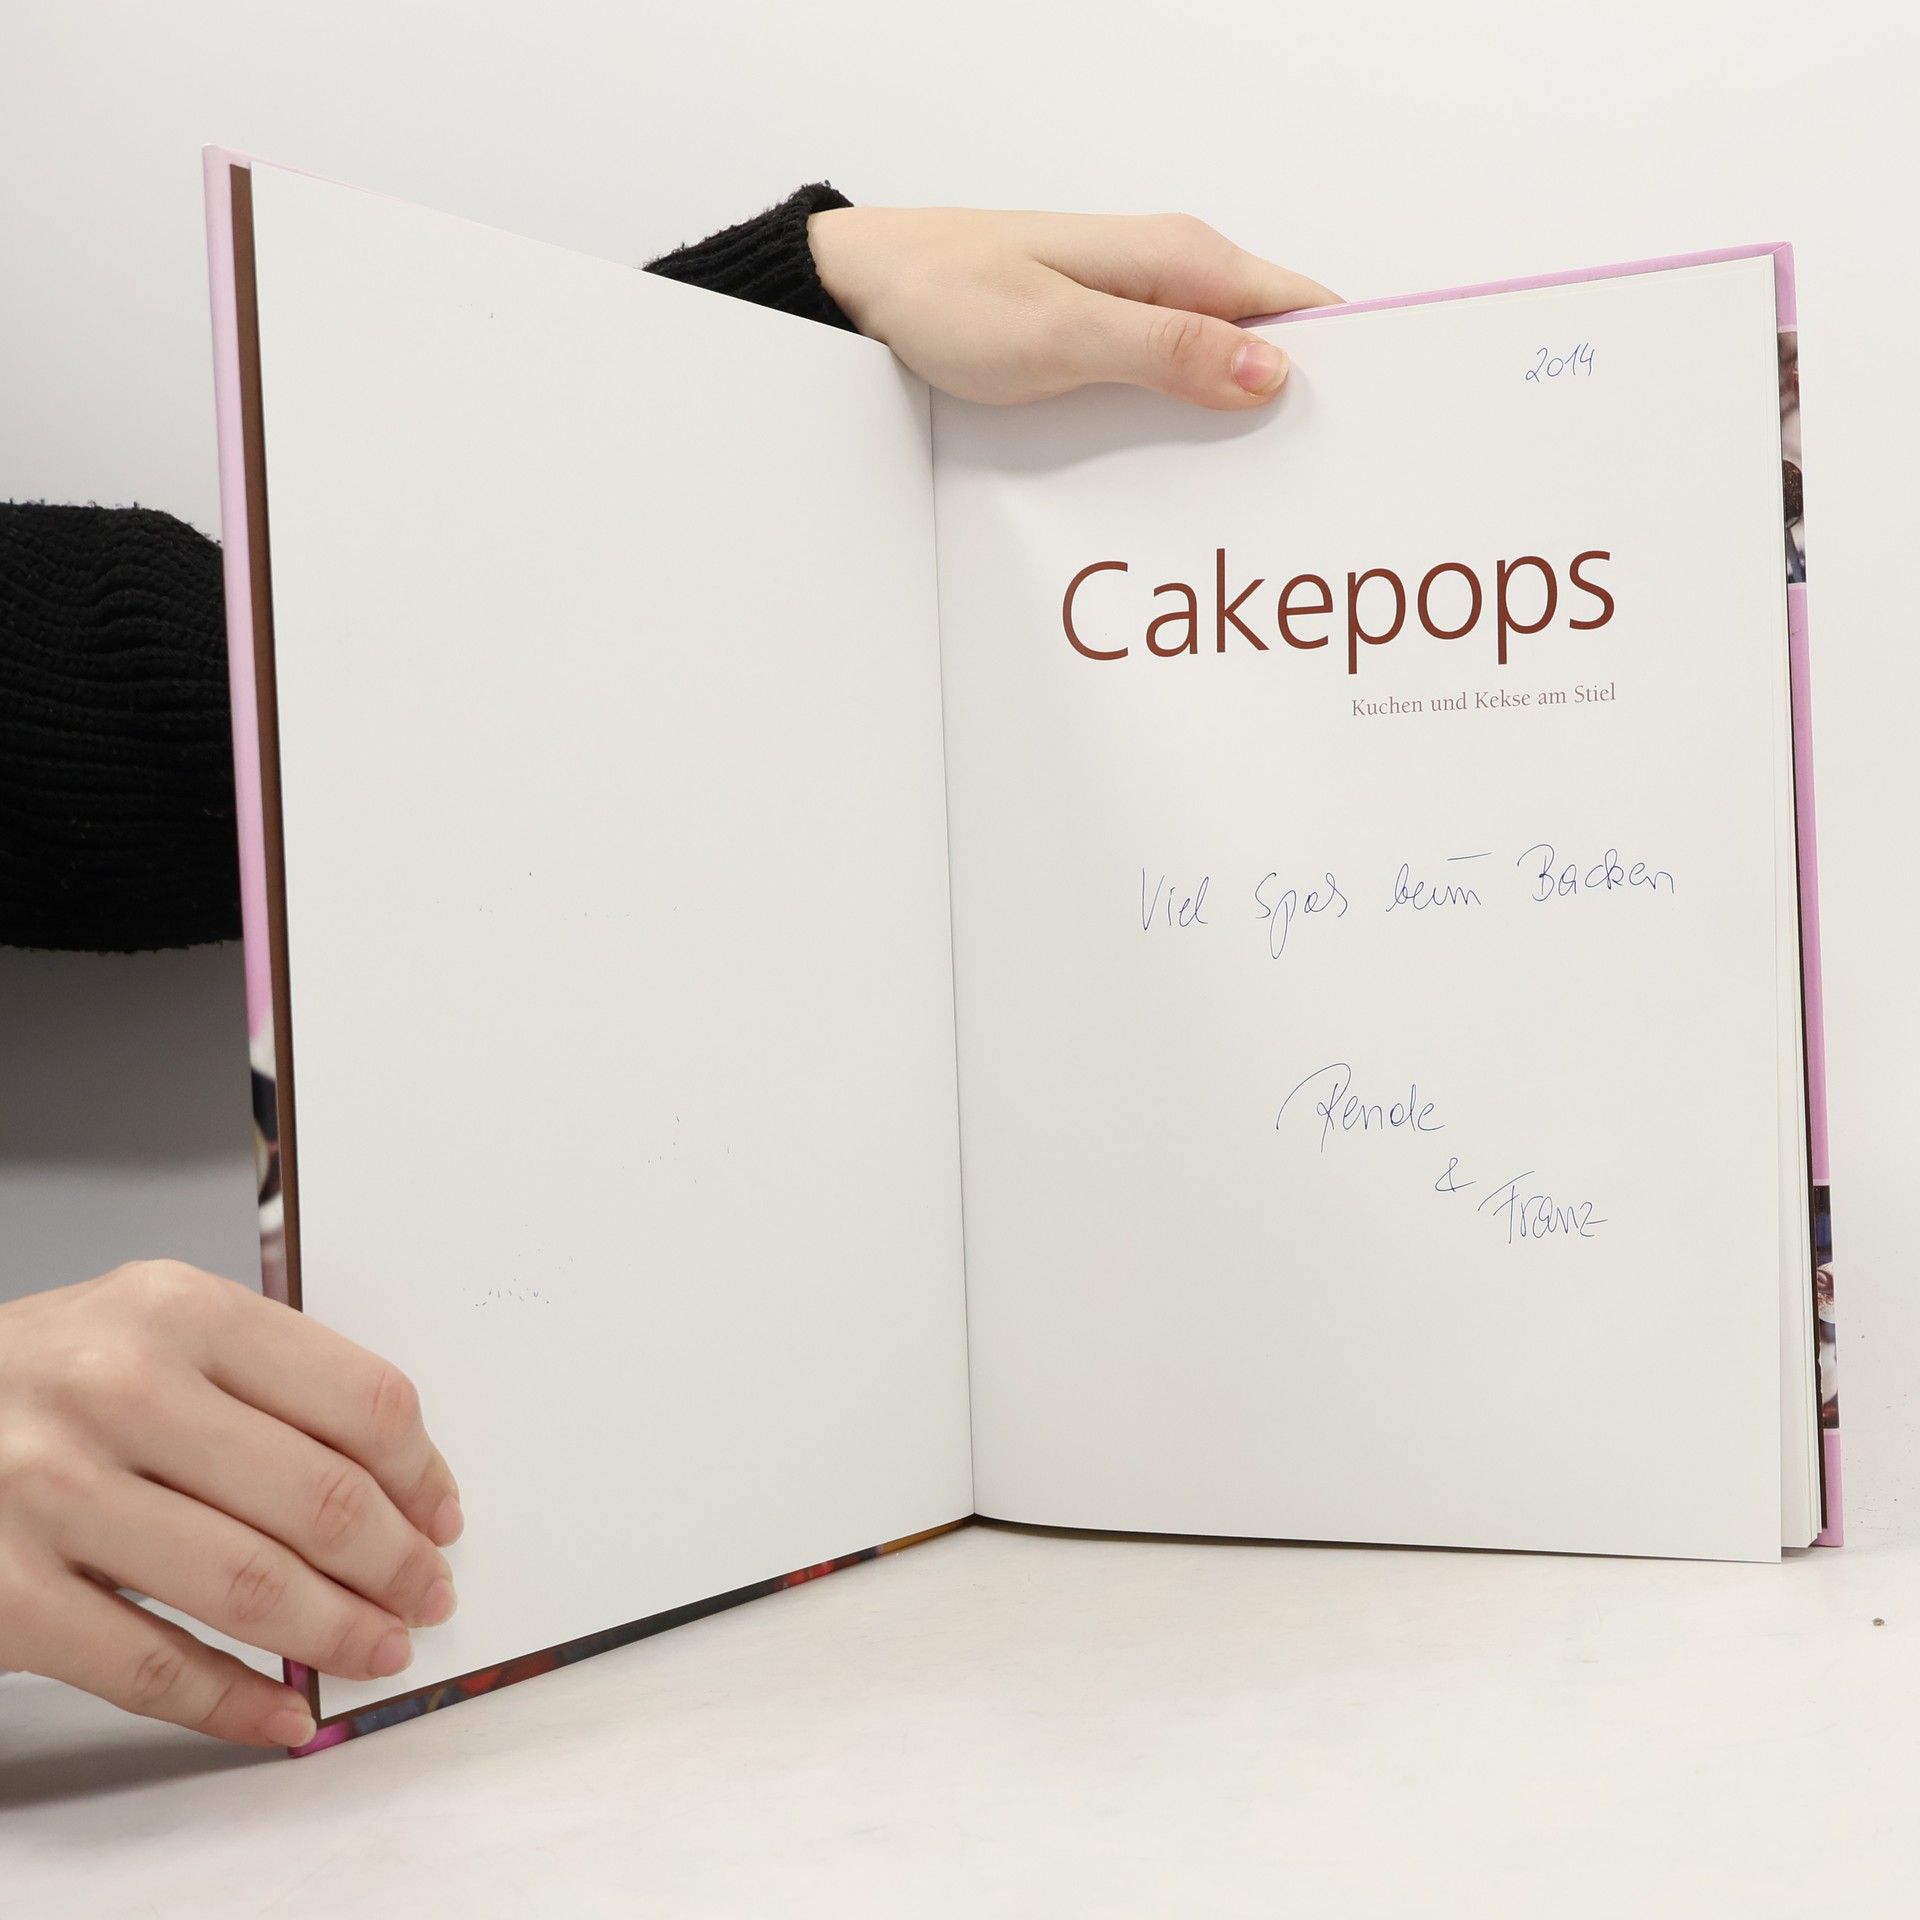 2014
Cakepops
Kuchen und Kekse am Stiel
Viel Spas beim Backen
&
Franz